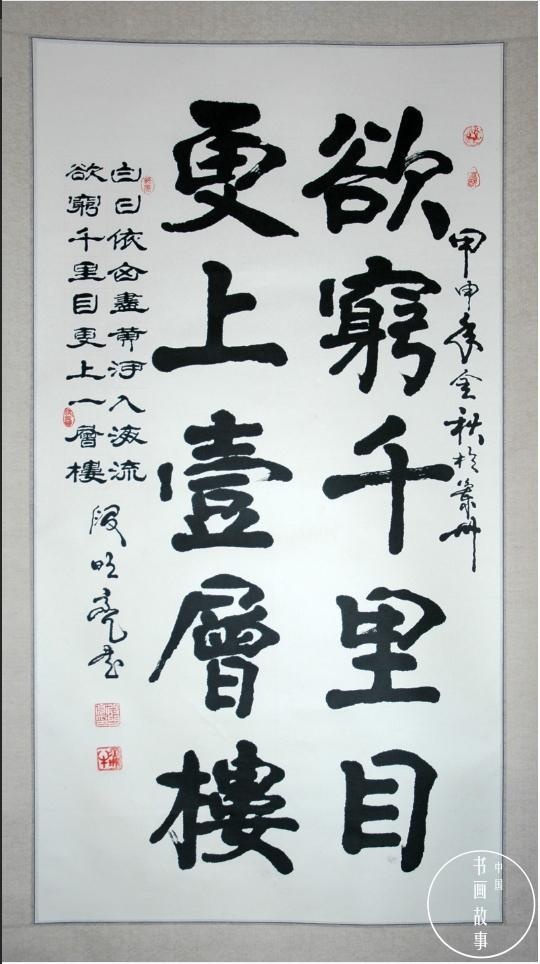 甲申年金秋於州
欲窮千里目
更上壹層樓
白日依山盡黄河入海流
欲窮千里目更上一層樓
段明亮書
中国
书画故事